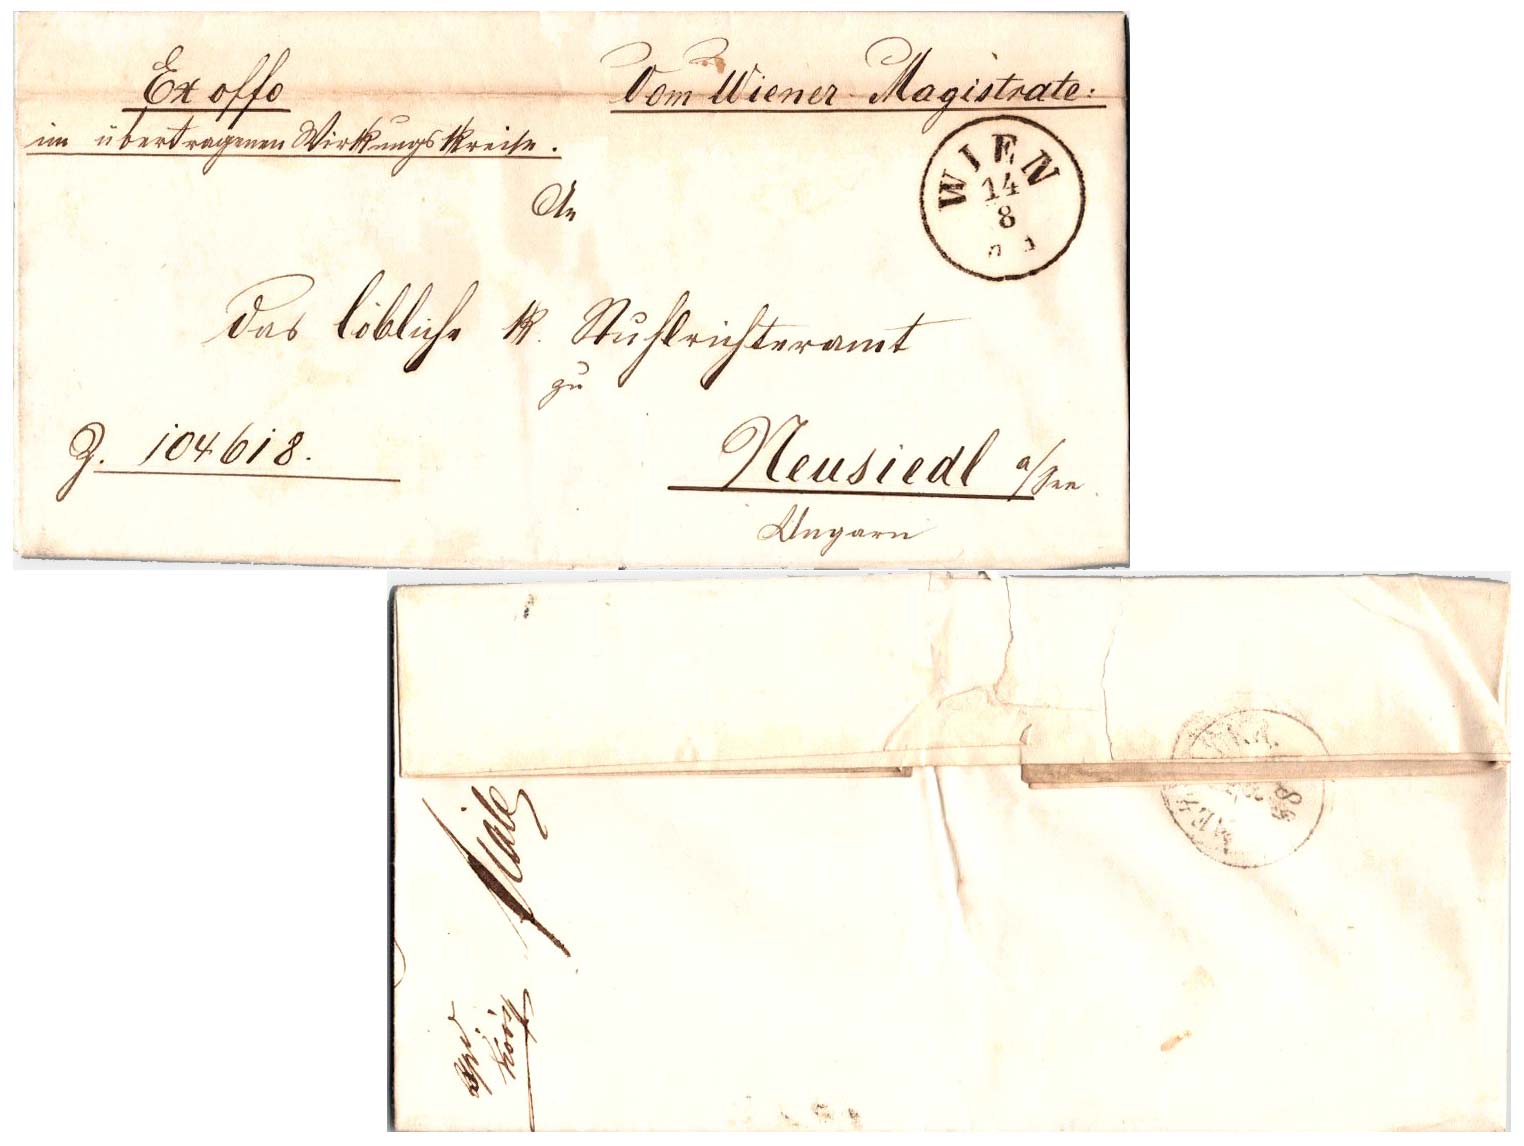 Ex offo
im übertragenen Wirkungskreise.
Vom Wiener Magistrate.
WIEN
14
8
An
das löbliche k. Stuhlrichteramt
zu
Z. 104618.
Neusiedl a/See
Ungarn